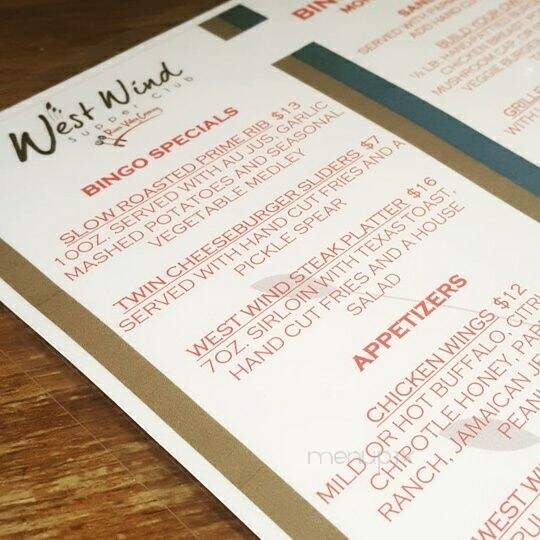 West Wind
SUPPER CLUB
BINGO SPECIALS
SLOW ROASTED PRIME RIB $13
10OZ. SERVED WITH AU JUS, GARLIC
MASHED POTATOES AND SEASONAL
VEGETABLE MEDLEY
TWIN CHEESEBURGER SLIDERS $7
SERVED WITH HAND CUT FRIES AND A
PICKLE SPEAR
WEST WIND STEAK PLATTER $16
7OZ. SIRLOIN WITH TEXAS TOAST,
HAND CUT FRIES AND A HOUSE
SALAD
APPETIZERS
CHICKEN WINGS $12
MILD OR HOT BUFFALO, CITR
CHIPOTLE HONEY, PAR
RANCH, JAMAICAN JE
PEAN
WEST W
PU
BIN
MO
SAN
SERVED WITH
ADD HAND CU
BUILD YOUR OW
½ LB. HANDPATTIED B
CHICKEN BRE
MUSHROOM CAP OR
VEGGIE BURGE
GRILLE
WITH